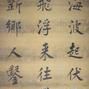 海波起伏
飛浮来往
新鄉人鑿